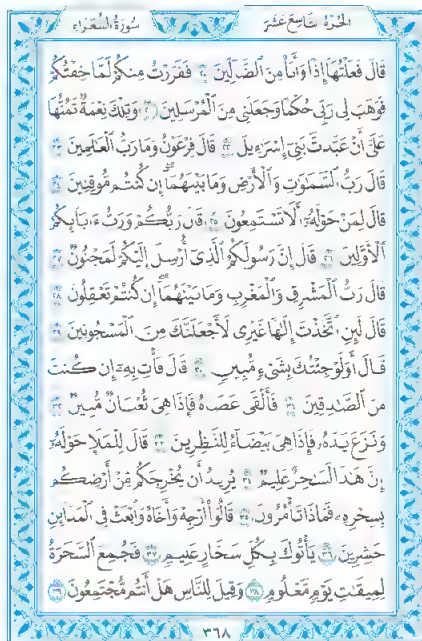 سورة الشعراء الجزء التاسع عشر
قَالَ فَعَلْتُهَا إِذًا وَأَنَا۠ مِنَ ٱلضَّآلِّينَ ٢٠ فَفَرَرْتُ مِنكُمْ لَمَّا خِفْتُكُمْ
فَوَهَبَ لِى رَبِّى حُكْمًا وَجَعَلَنِى مِنَ ٱلْمُرْسَلِينَ ٢١ وَتِلْكَ نِعْمَةٌ تَمُنُّهَا
عَلَىَّ أَنْ عَبَّدتَّ بَنِىٓ إِسْرَٰٓءِيلَ ٢٢ قَالَ فِرْعَوْنُ وَمَا رَبُّ ٱلْعَٰلَمِينَ ٢٣
قَالَ رَبُّ ٱلسَّمَٰوَٰتِ وَٱلْأَرْضِ وَمَا بَيْنَهُمَآ ۖ إِن كُنتُم مُّوقِنِينَ ٢٤
قَالَ لِمَنْ حَوْلَهُۥٓ أَلَا تَسْتَمِعُونَ ٢٥ قَالَ رَبُّكُمْ وَرَبُّ ءَابَآئِكُمُ
ٱلْأَوَّلِينَ ٢٦ قَالَ إِنَّ رَسُولَكُمُ ٱلَّذِىٓ أُرْسِلَ إِلَيْكُمْ لَمَجْنُونٌ ٢٧
قَالَ رَبُّ ٱلْمَشْرِقِ وَٱلْمَغْرِبِ وَمَا بَيْنَهُمَآ ۖ إِن كُنتُمْ تَعْقِلُونَ ٢٨
قَالَ لَئِنِ ٱتَّخَذْتَ إِلَٰهًا غَيْرِى لَأَجْعَلَنَّكَ مِنَ ٱلْمَسْجُونِينَ ٢٩
قَالَ أَوَلَوْ جِئْتُكَ بِشَىْءٍ مُّبِينٍ ٣٠ قَالَ فَأْتِ بِهِۦٓ إِن كُنتَ
مِنَ ٱلصَّٰدِقِينَ ٣١ فَأَلْقَىٰ عَصَاهُ فَإِذَا هِىَ ثُعْبَانٌ مُّبِينٌ ٣٢
وَنَزَعَ يَدَهُۥ فَإِذَا هِىَ بَيْضَآءُ لِلنَّٰظِرِينَ ٣٣ قَالَ لِلْمَلَإِ حَوْلَهُۥٓ
إِنَّ هَٰذَا لَسَٰحِرٌ عَلِيمٌ ٣٤ يُرِيدُ أَن يُخْرِجَكُم مِّنْ أَرْضِكُم
بِسِحْرِهِۦ فَمَاذَا تَأْمُرُونَ ٣٥ قَالُوٓا۟ أَرْجِهْ وَأَخَاهُ وَٱبْعَثْ فِى ٱلْمَدَآئِنِ
حَٰشِرِينَ ٣٦ يَأْتُوكَ بِكُلِّ سَحَّارٍ عَلِيمٍ ٣٧ فَجُمِعَ ٱلسَّحَرَةُ
لِمِيقَٰتِ يَوْمٍ مَّعْلُومٍ ٣٨ وَقِيلَ لِلنَّاسِ هَلْ أَنتُم مُّجْتَمِعُونَ ٣٩
٣٦٨